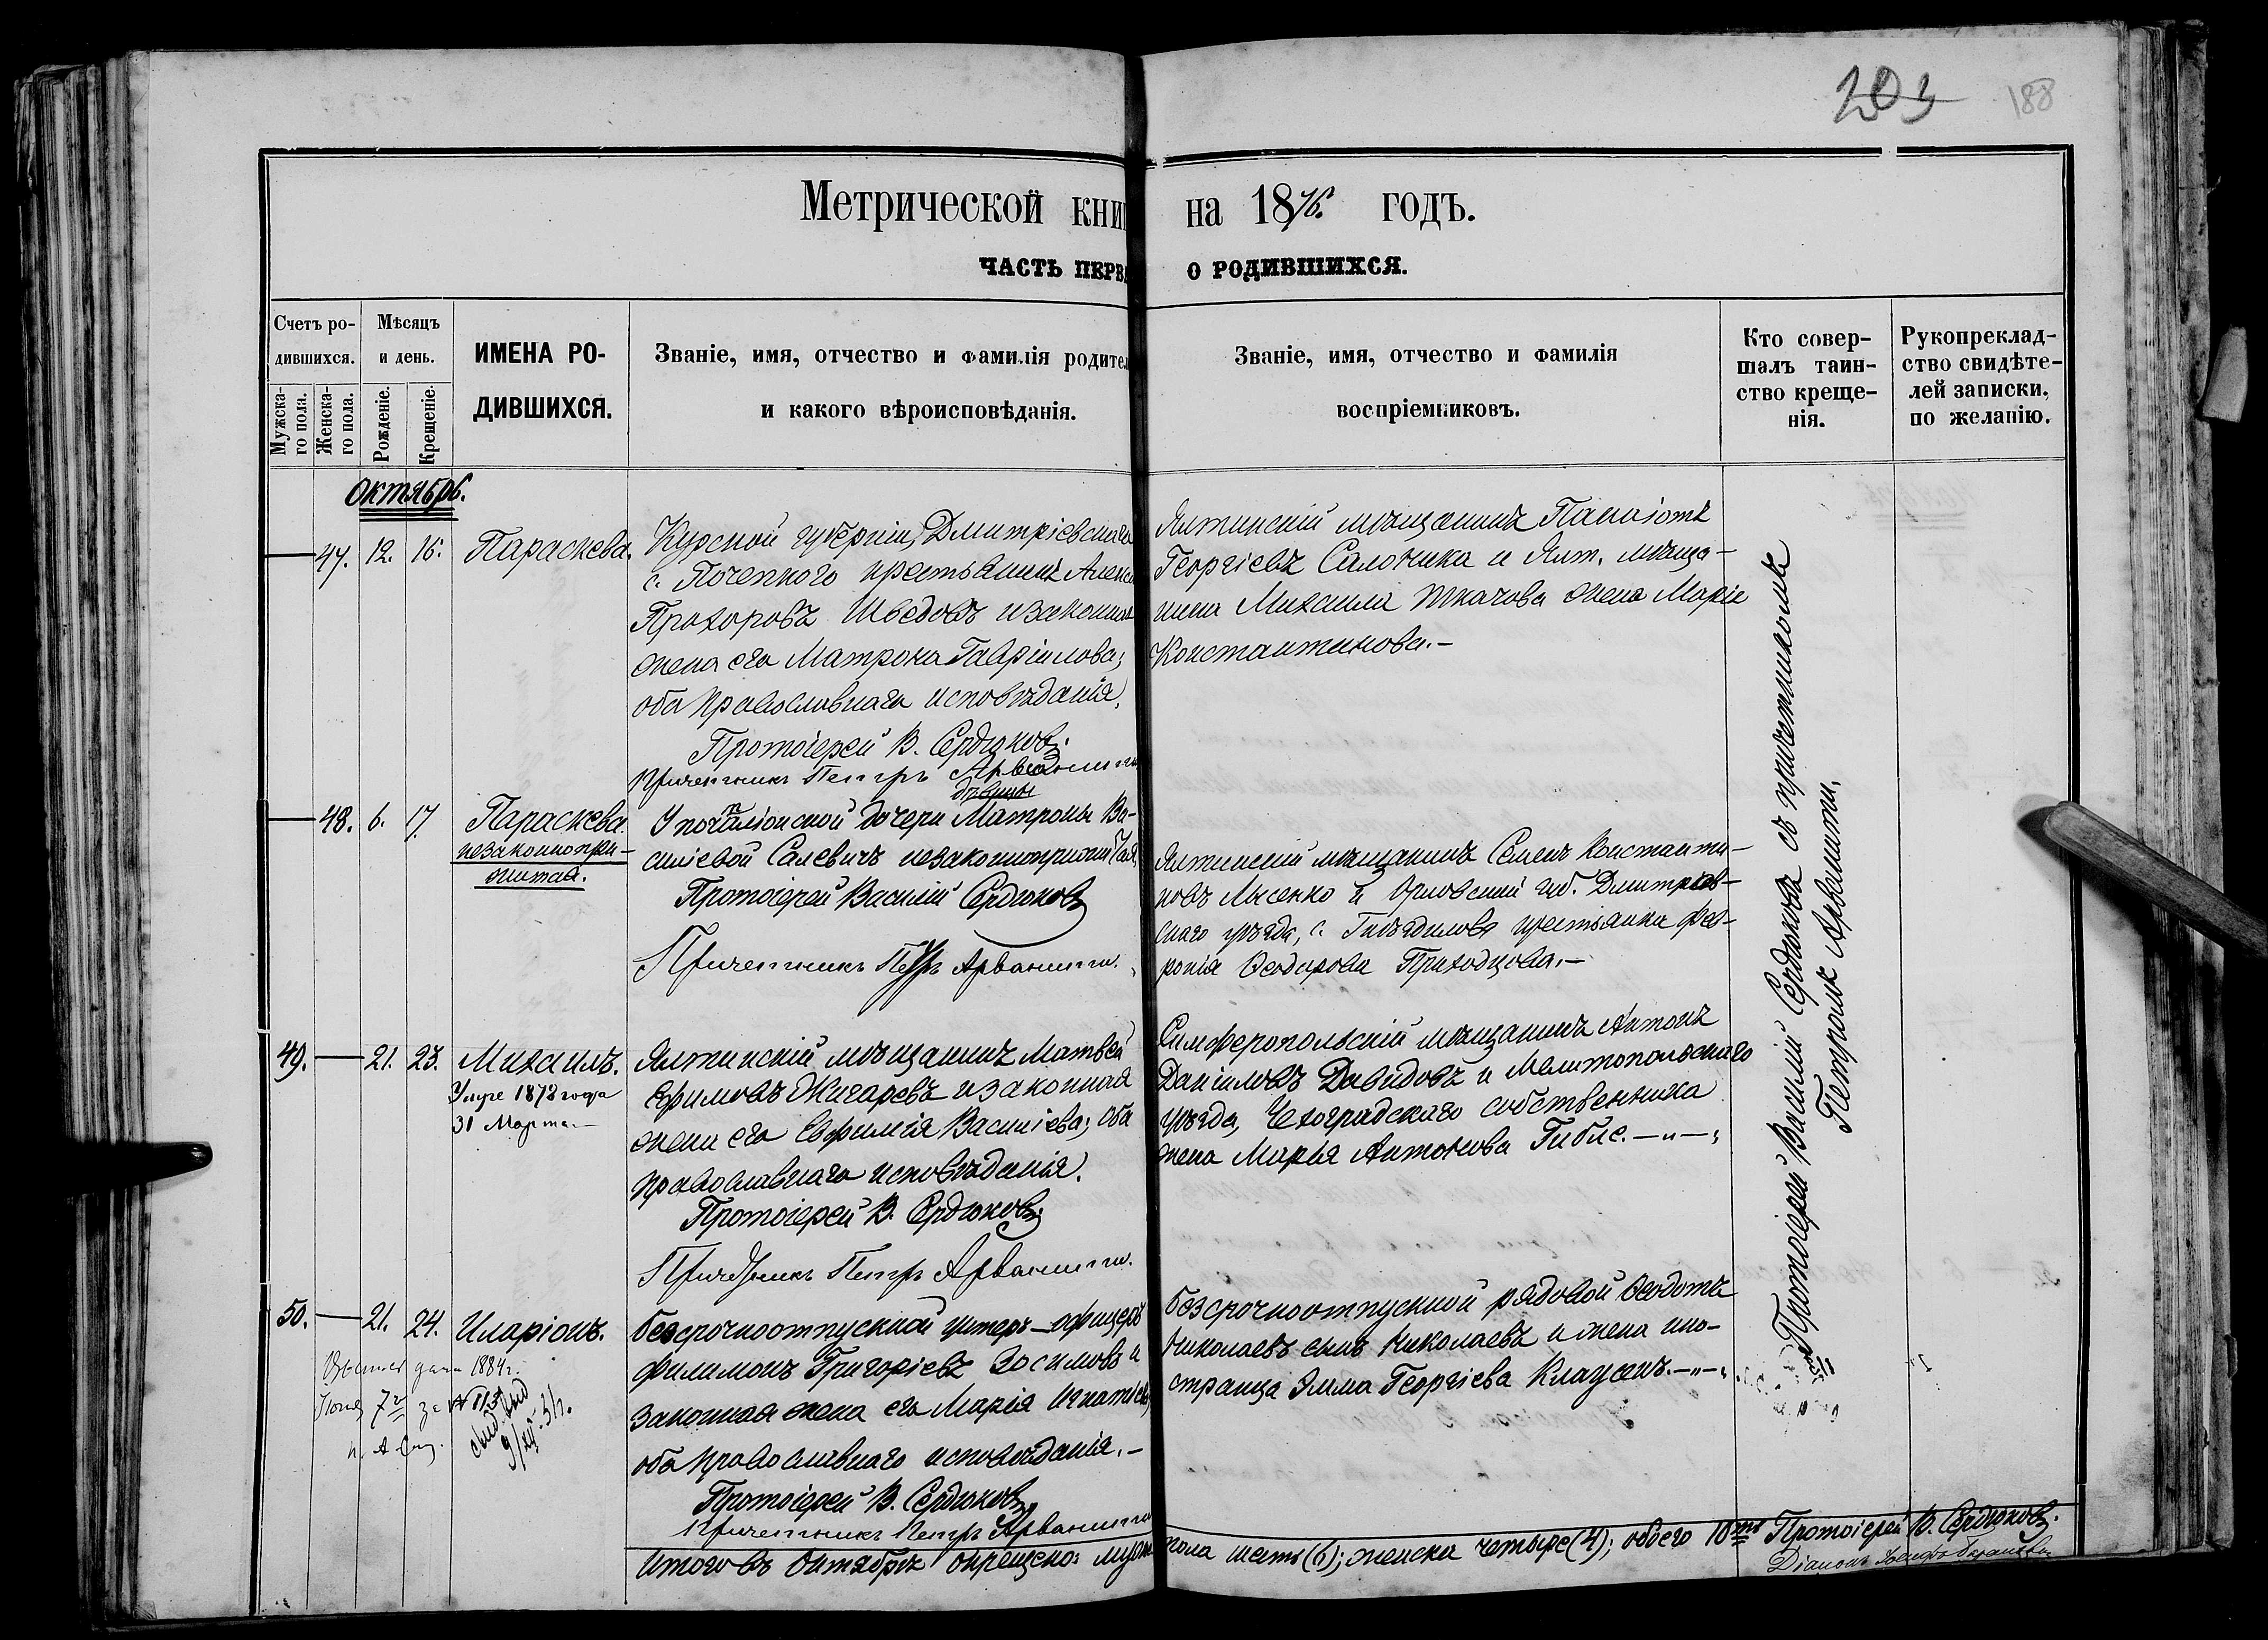 203 188
Метрической кни на 1876. годъ.
ЧАСТЬ ПЕРВА О РОДИВШИХСЯ.
Счетъ ро-
дившихся.
Мужска-
го пола.
Женска-
го пола.
Мѣсяцъ
и день.
Рожденіе.
Крещеніе.
ИМЕНА РО-
ДИВШИХСЯ.
Званіе, имя, отчество и фамилія родител
и какого вѣроисповѣданія.
Званіе, имя, отчество и фамилія
воспріемниковъ.
Кто совер-
шалъ таин-
ство креще-
нія.
Рукоприклад-
ство свидѣте-
лей записки,
по желанію.
Октябрь.
47. 12. 16. Параскева.
Курской губерніи, Дмитріевскаго
с. Поченного крестьянинъ Алекс
Прохоровъ Шведовъ и законная
жена его Матрона Гавріилова;
оба православнаго исповѣданія.
Протоіерей В. Сердюковъ.
Причетникъ Петръ Арванити
Ялтинскій мѣщанинъ Панаіотъ
Георгіевъ Салочика и Ялт. мѣща-
нина Михаила Ткачова жена Марія
Константинова.-
48. 6. 17 Параскева.
незаконнопри-
житая.
дѣвицы
Матроны Ва-
силіевой Салевичъ незаконноприжитая
Протоіерей Василій Сердюковъ
Причетникъ Петръ Арванити.
Ялтинскій мѣщанинъ Семенъ Константи-
новъ Лысенко и Орловской губ. Дмитріев-
скаго уѣзда, с. крестьянка Фев-
ронія Ѳеодорова Приходцова.-
49. 21. 23. Михаилъ.
Умре 1878 года
31 Марта.-
Ялтинскій мѣщанинъ Матвей
Ефимовъ Жигаревъ и законная
жена его Евфимія Василіева; оба
православнаго исповѣданія.
Протоіерей В. Сердюковъ
Причетникъ Петръ Арванити.
Симферопольскій мѣщанинъ Антонъ
Даніиловъ Давидовъ и Мелитопольскаго
уѣзда, Чехоградскаго собственника
жена Марья Антонова Гибис.-"-;
50. 21. 24. Иларіонъ.
1884г.
Іюня 7
Безсрочноотпускной унтеръ-офицеръ
Филимонъ Григоріевъ Зосимовъ и
законная жена его Марія Игнатіева
оба православнаго исповѣданія.-
Протоіерей В. Сердюковъ
Причетникъ Петръ Арванити
Безсрочноотпускной рядовой Ѳеодотъ
Николаевъ сынъ Николаевъ и жена ино-
странца Эмма Георгіева Клаусинъ.-"-;
Протоіерей Василій Сердюковъ съ причетникомъ
Петромъ Арванити.
Итого въ Октябрѣ окрещено: муж пола шесть (6); женска четыре (4); обоего 10ть Протоіерей В. Сердюковъ.
Діаконъ